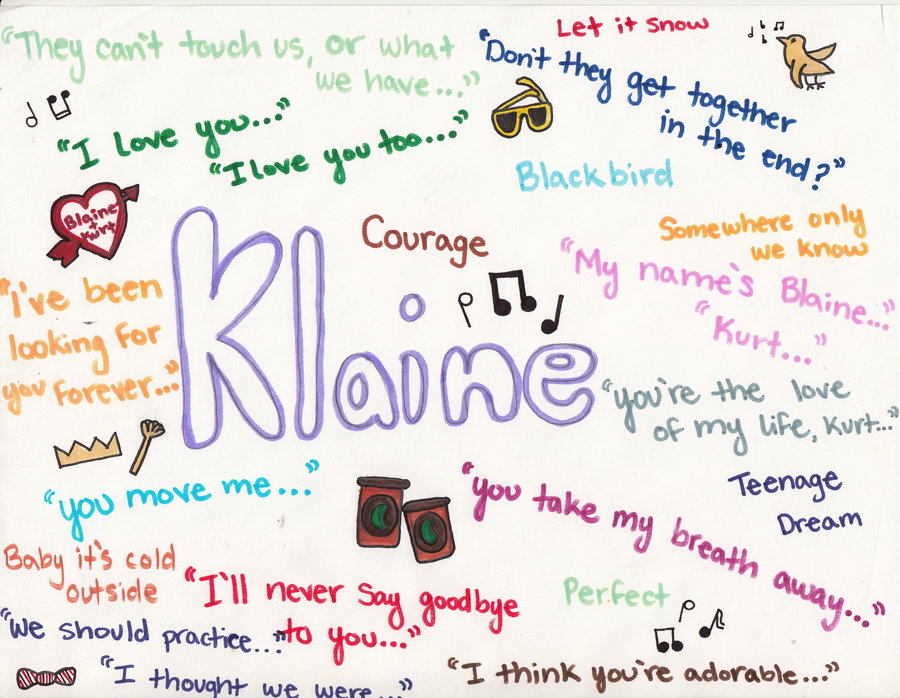 "They can't touch us, or what
we have..."
Let it snow
"Don't they get together
in the end?"
"I love you..."
"I love you too..."
Blackbird
Blaine
+
Kurt
Courage
Somewhere only
we know
"My name's Blaine..."
"Kurt..."
"I've been
looking for
you forever..."
Klaine
"you're the love
of my life, Kurt..."
"you move me..."
"you take my breath away..."
Teenage
Dream
Baby it's cold
outside
"I'll never say goodbye
to you..."
Perfect
"We should practice..."
"I thought we were..."
"I think you're adorable..."